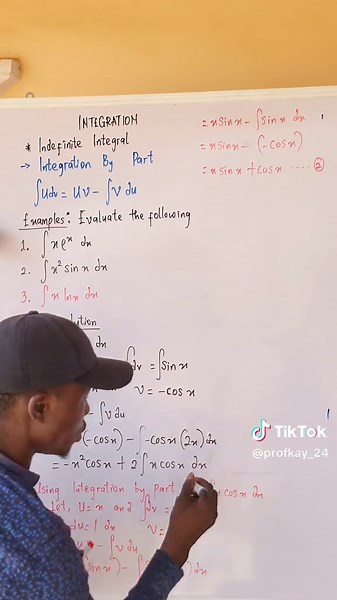 INTEGRATION
* Indefinite Integral
→ Integration By Part
∫udv = UV - ∫v du
Examples: Evaluate the following
1. ∫ x eˣ dx
2. ∫ x² sin x dx
3. ∫ x ln x dx
dx
∫dv = ∫sin x
v = -cos x
- ∫v du
(-cos x) - ∫-cos x (2x) dx
= -x² cos x + 2 ∫ x cos x dx
Using Integration by part cos x dx
Let, u = x and ∫dv =
du = 1 dx v =
- ∫v du
sin x) - ∫ dx
= x sin x - ∫ sin x dx
= x sin x - (-cos x)
= x sin x + cos x ..... ②
TikTok
@profkay_24